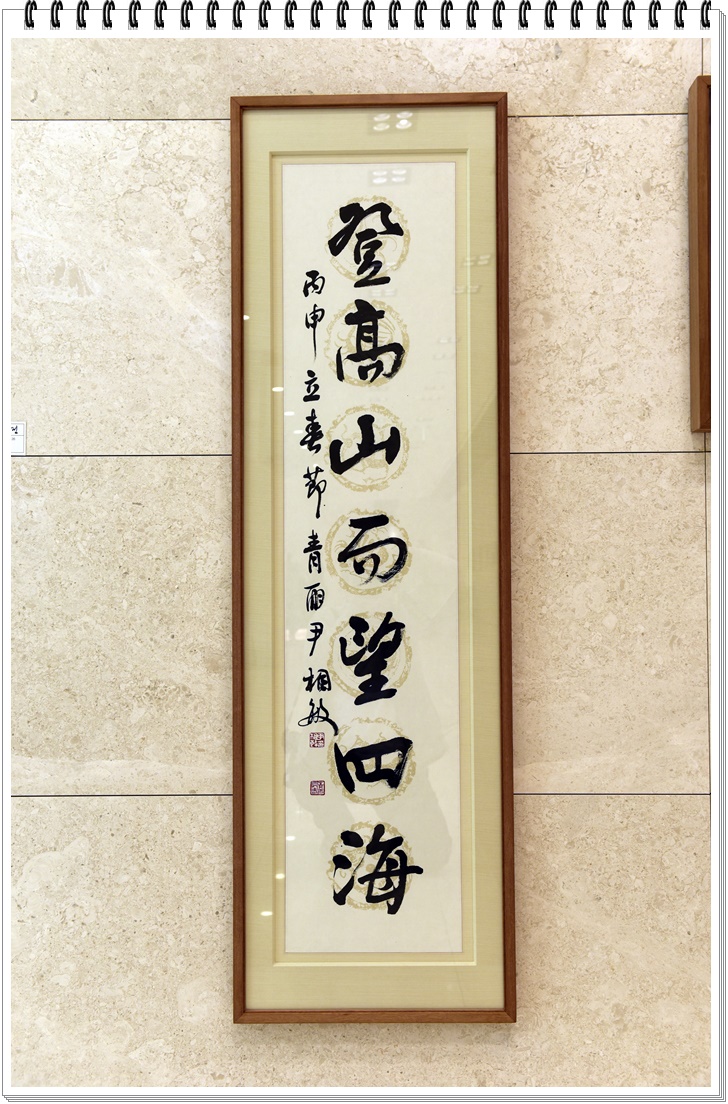 登高山而望四海
丙申立春節青雨尹相敏